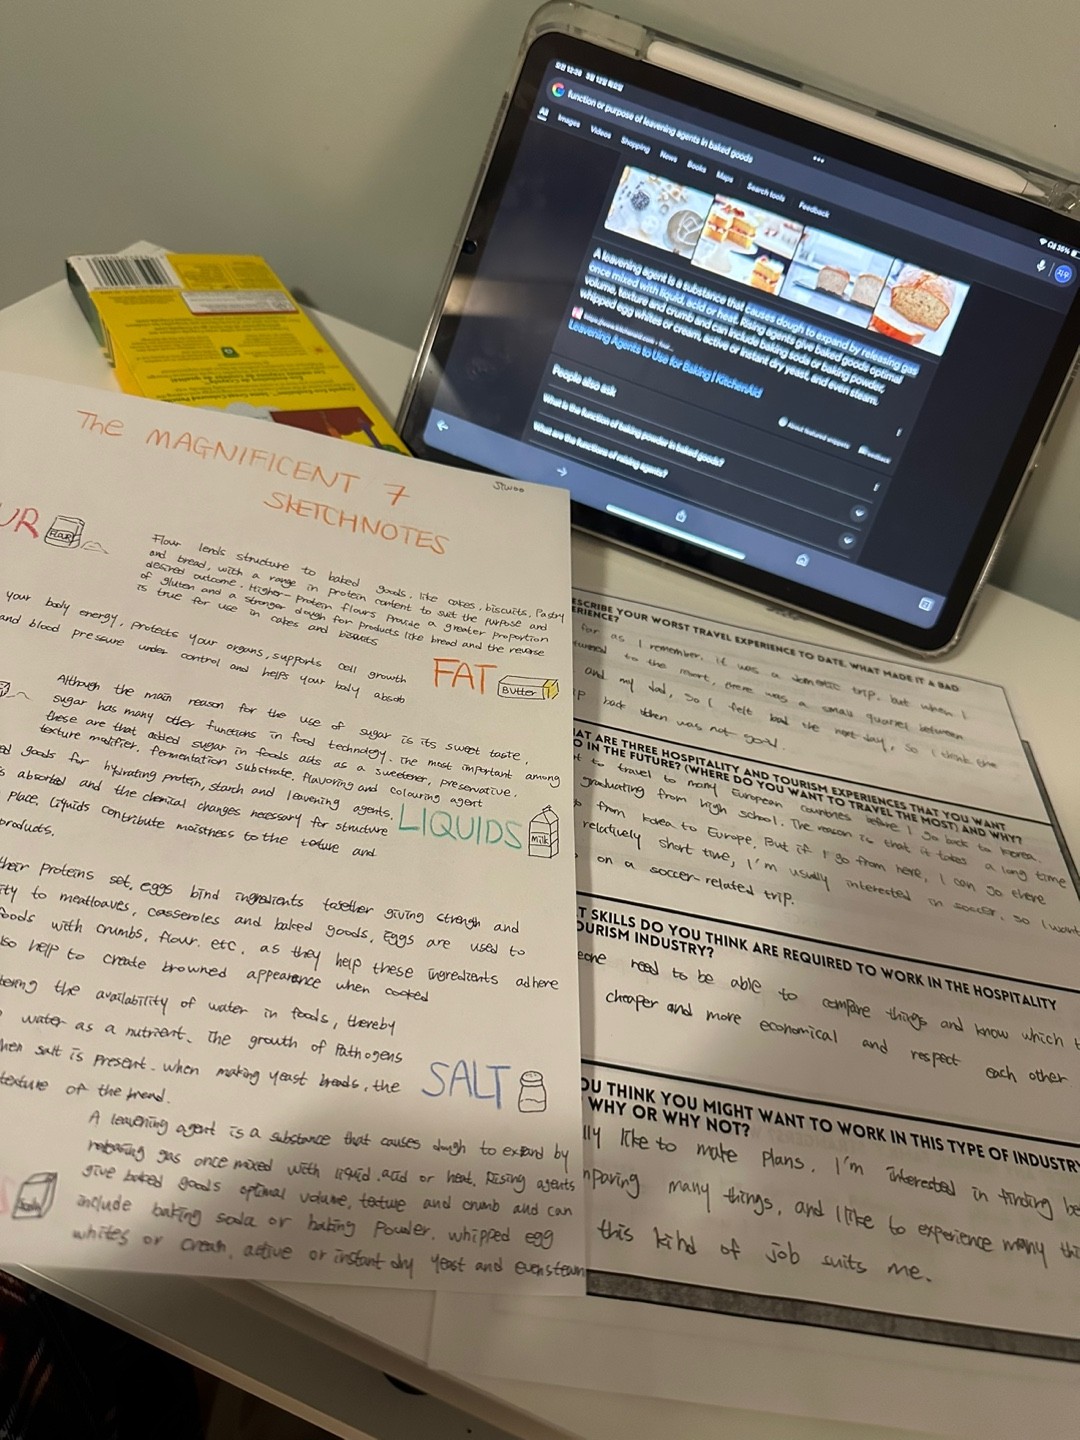 function or purpose of leavening agents in baked goods
All Images Videos Shopping News Books Maps Search tools Feedback
A leavening agent is a substance that causes dough to expand by releasing gas
once mixed with liquid, acid or heat. Rising agents give baked goods optimal
volume, texture and crumb and can include baking soda or baking powder,
whipped egg whites or cream, active or instant dry yeast, and even steam.
Leavening Agents to Use for Baking | KitchenAid
About featured snippets Feedback
People also ask
What is the function of baking powder in baked goods?
What are the functions of raising agents?
The MAGNIFICENT 7
SKETCHNOTES
Jiwoo
UR
FLOUR
Flour lends structure to baked goods. like cakes, biscuits, Pastry
and bread, with a range in protein content to suit the purpose and
desired outcome. Higher-Protein flours Provide a greater proportion
of gluten and a stronger dough for products like bread and the reverse
is true for use in cakes and biscuits
your body energy, protects your organs, supports cell growth
and blood pressure under control and helps your body absob
FAT
Butter
Although the main reason for the use of sugar is its sweet taste,
sugar has many other functions in food technology. The most important among
these are that added sugar in foods acts as a sweetener, preservative,
texture modifier, fermentation substrate, flavoring and colouring agent
ed goods for hydrating protein, starch and leavening agents.
absorbed and the chemical changes necessary for structure
place, Liquids contribute moistness to the texture and
products.
LIQUIDS
Milk
their Proteins set, eggs bind ingredients together giving strength and
ity to meatloaves, casseroles and baked goods, Eggs are used to
foods with crumbs, flour. etc, as they help these ingredients adhere
lso help to create browned appearance when cooked
tering the availability of water in foods, thereby
water as a nutrient. The growth of Pathogens
hen salt is present. when making yeast breads, the
texture of the bread.
SALT
A leavening agent is a substance that causes dough to expand by
releasing gas once mixed with liquid, acid or heat. Rising agents
give baked goods optimal volume, texture and crumb and can
include baking soda or baking Powder. whipped egg
whites or cream, active or instant dry yeast and even steam
ESCRIBE YOUR WORST TRAVEL EXPERIENCE TO DATE. WHAT MADE IT A BAD
ERIENCE?
far as I remember. it was a domestic trip, but when I
turned to the resort, there was a small quarrel between
and my dad, so I felt bad the next day, so I think the
p back then was not good.
AT ARE THREE HOSPITALITY AND TOURISM EXPERIENCES THAT YOU WANT
O IN THE FUTURE? (WHERE DO YOU WANT TO TRAVEL THE MOST) AND WHY?
t to travel to many European countries before I go back to korea.
graduating from high school. The reason is that it takes a long time
from korea to Europe. But if I go from here, I can go there
relatively short time, I'm usually interested in soccer, so I want
on a soccer-related trip.
T SKILLS DO YOU THINK ARE REQUIRED TO WORK IN THE HOSPITALITY
OURISM INDUSTRY?
eone need to be able to compare things and know which
cheaper and more economical and respect each other.
OU THINK YOU MIGHT WANT TO WORK IN THIS TYPE OF INDUSTRY
WHY OR WHY NOT?
lly like to make plans. I'm interested in finding be
mparing many things, and I like to experience many thi
this kind of job suits me.